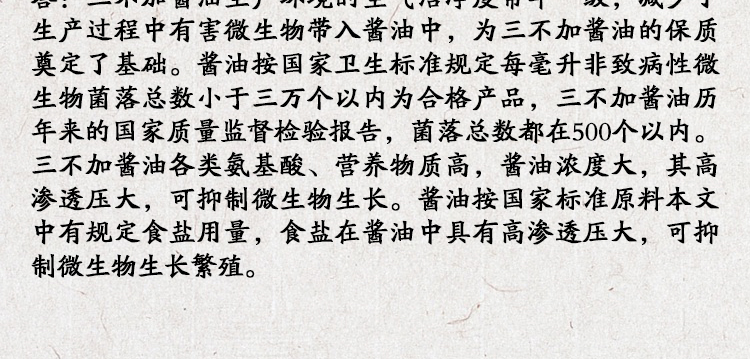 答：三不加酱油生产环境的空气洁净度带年一级，减少了
生产过程中有害微生物带入酱油中，为三不加酱油的保质
奠定了基础。酱油按国家卫生标准规定每毫升非致病性微
生物菌落总数小于三万个以内为合格产品，三不加酱油历
年来的国家质量监督检验报告，菌落总数都在500个以内。
三不加酱油各类氨基酸、营养物质高，酱油浓度大，其高
渗透压大，可抑制微生物生长。酱油按国家标准原料本文
中有规定食盐用量，食盐在酱油中具有高渗透压大，可抑
制微生物生长繁殖。